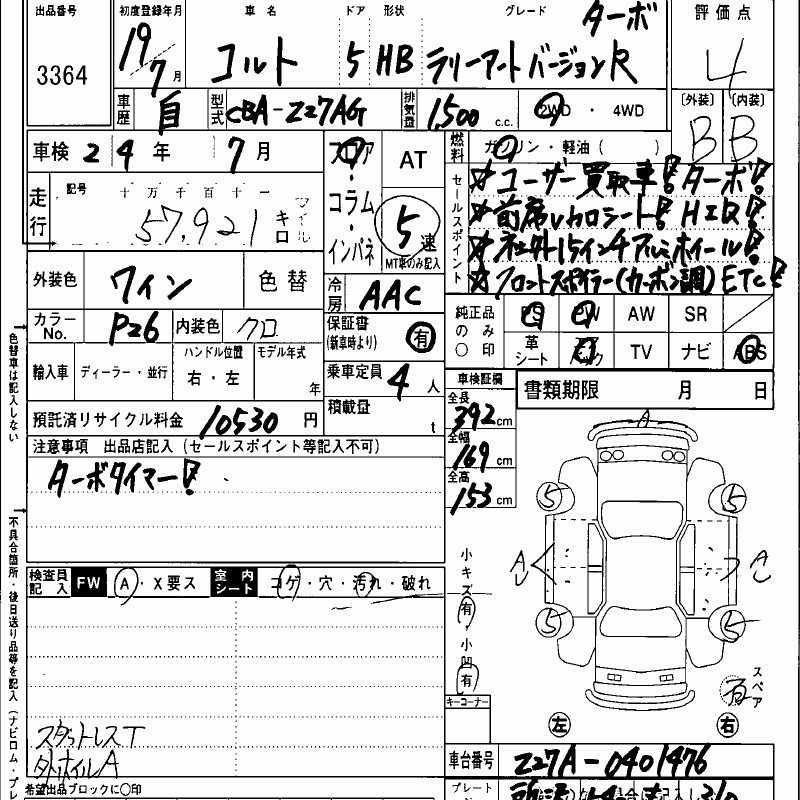 出品番号 初度登録年月 車名 ドア 形状 グレード 評価点
3364 19年 7月 コルト 5 HB ラリーアートバージョンR ターボ 4
車歴 自 型式 CBA-Z27AG 排気量 1,500 c.c. 2WD ・ 4WD 〔外装〕 B 〔内装〕 B
車検 24年 7月 フロア・コラム・インパネ AT 燃料 ガソリン・軽油( )
走行 記号 十万千百十一 57,921 キロ マイル 5速 MT車のみ記入
セールスポイント
☆ユーザー買取車! ターボ!
☆前席レカロシート! HID!
☆社外15インチアルミホイール!
☆フロントスポイラー(カーボン調) ETC!
外装色 ワイン 色替 冷房 AAC
カラーNo. P26 内装色 クロ 保証書(新車時より) 有
純正品のみ〇印 PS PW AW SR
革シート エアバック TV ナビ ABS
輸入車 ディーラー・並行 ハンドル位置 右・左 モデル年式 年 乗車定員 4人
車検証欄 書類期限 月 日
預託済リサイクル料金 10530 円 積載量 t
全長 392 cm
全幅 169 cm
全高 153 cm
注意事項 出品店記入(セールスポイント等記入不可)
ターボタイマー!
色替車は記入しない
不具合箇所・後日送り品等を記入(ナビロム・プレ
検査員記入 FW A・X要ス 室内シート コゲ・穴・汚れ・破れ
小キズ有・小凹有
A
5 5
A A
5 5
スペア 有
キーコーナー
左 右
スタットレスT
外ホイルA
車台番号 Z27A-0401476
希望出品ブロックに〇印 プレート